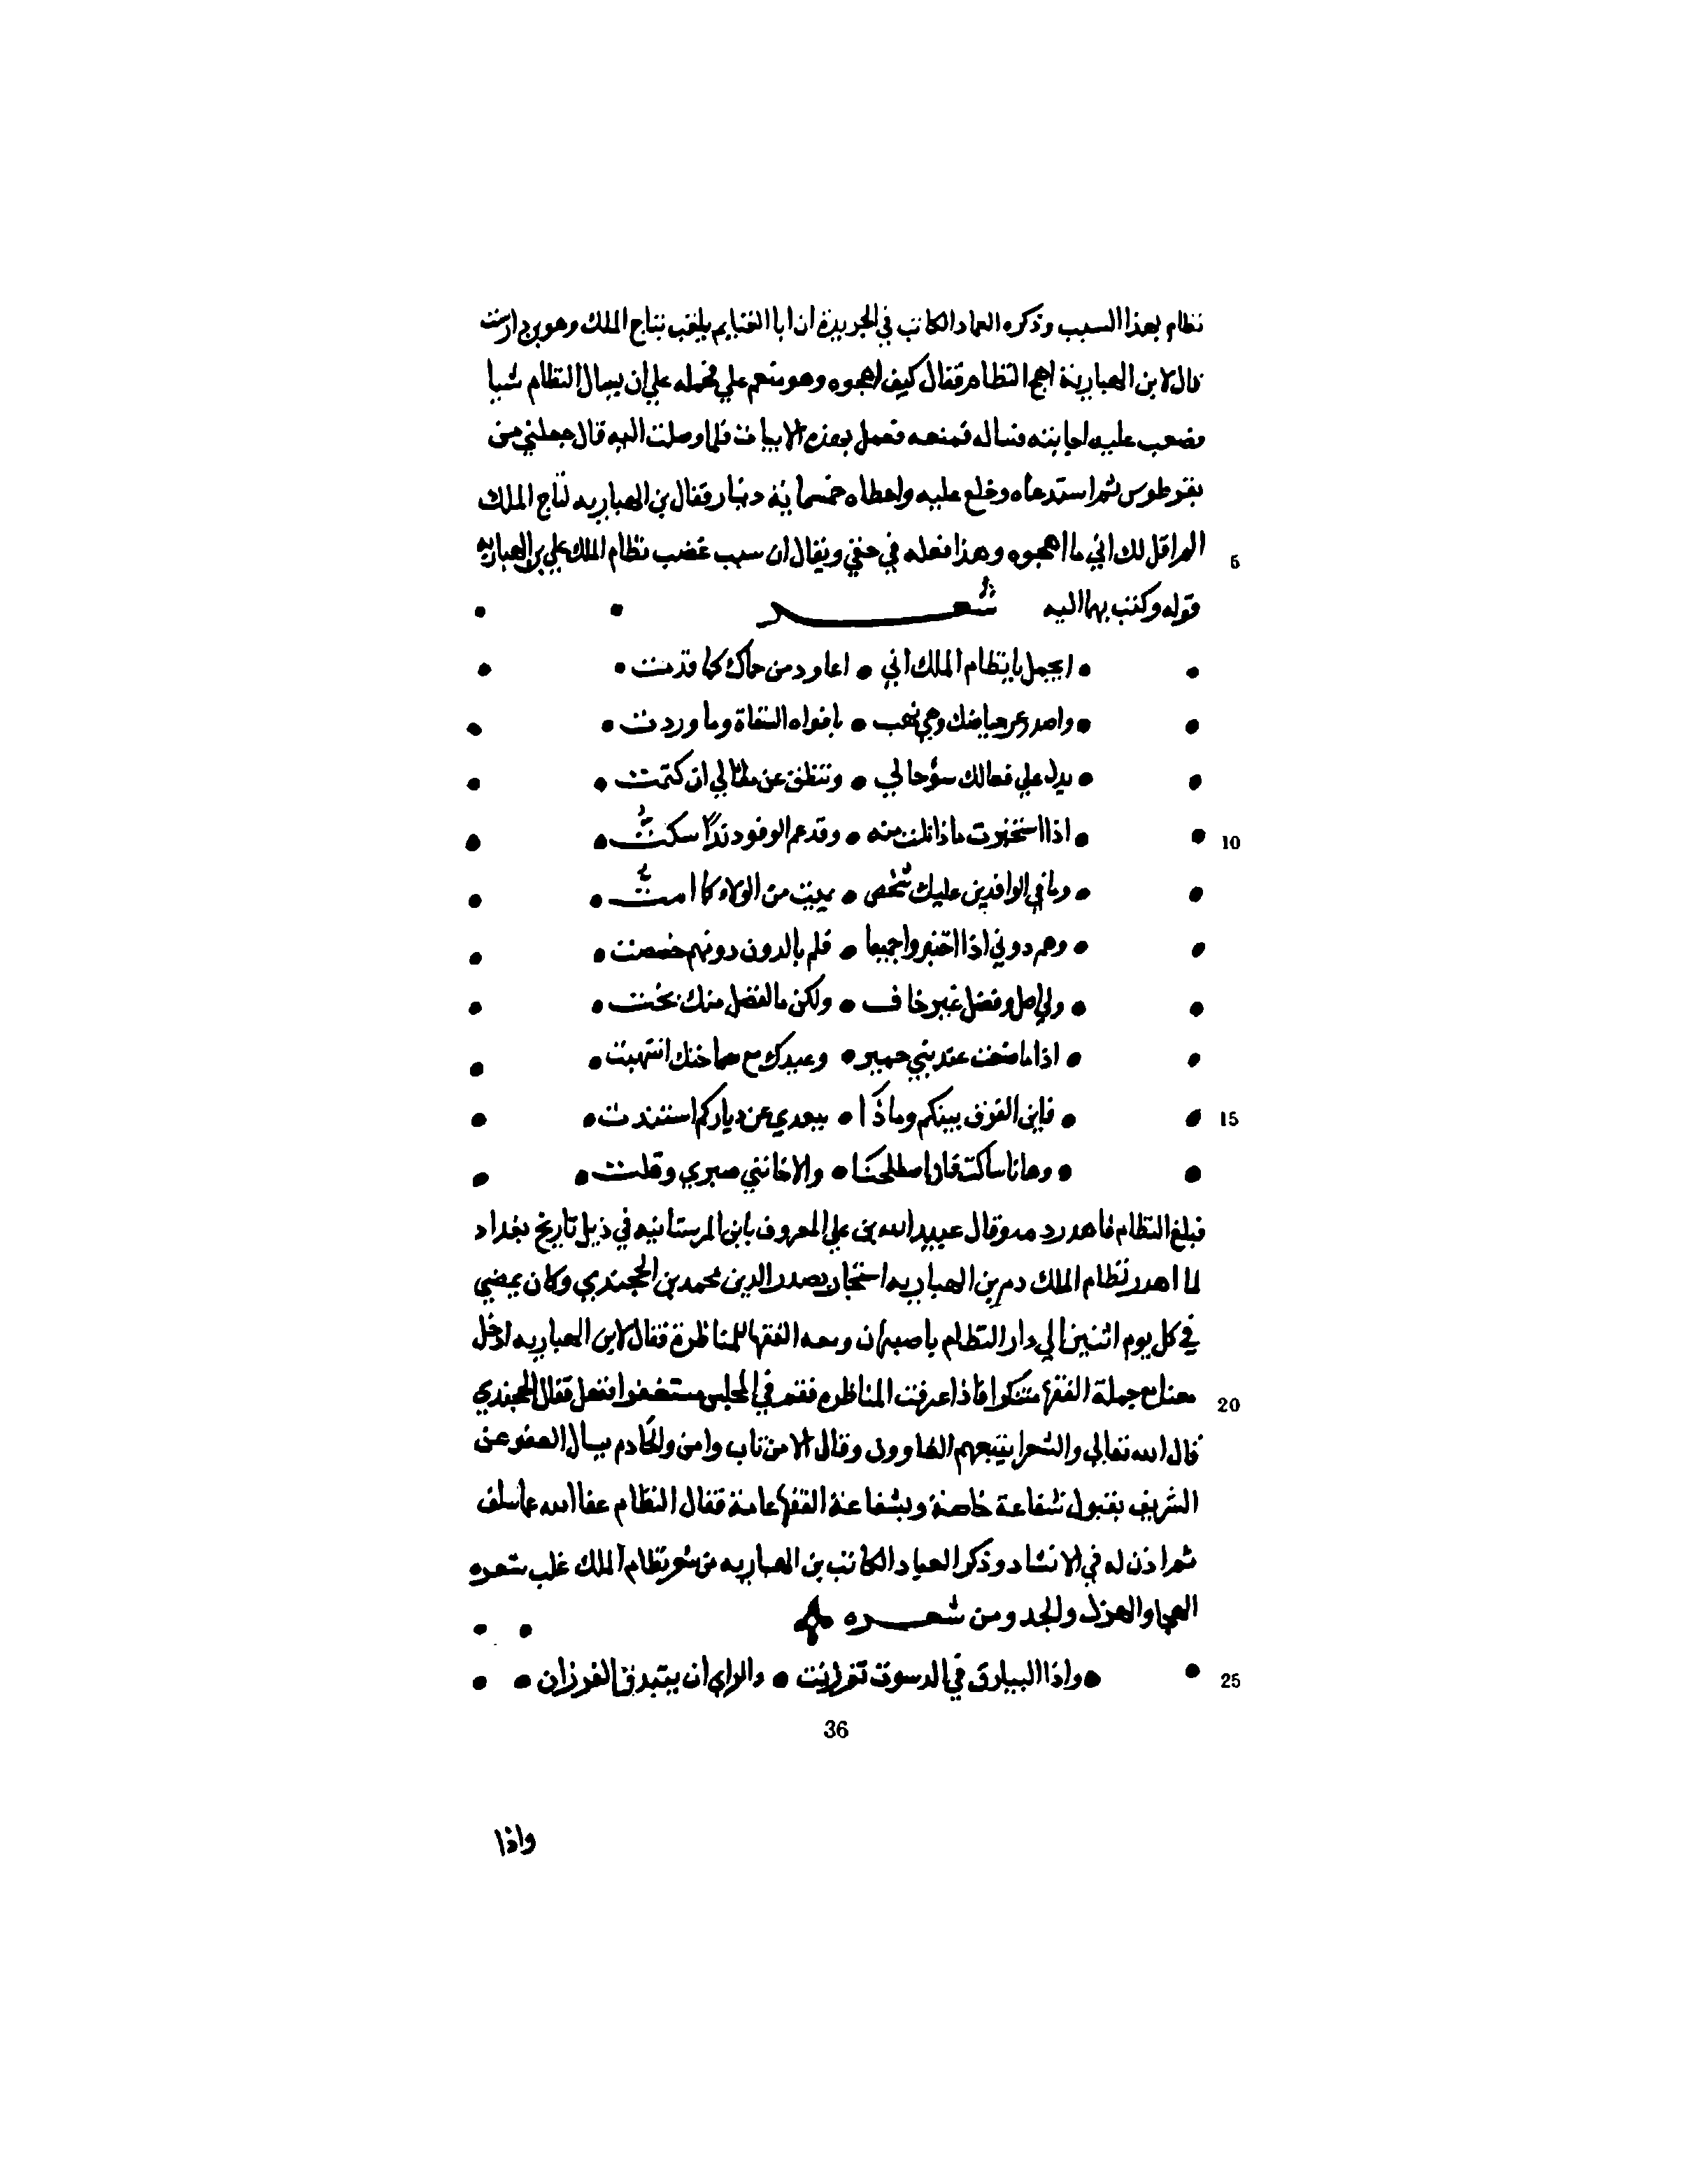 نظام بهذا السبب وذكره العماد الكاتب في الجريدة ان ابا الغنايم يلقب بتاج الملك وهو بن دارست
قال لابن الهبارية اهج النظام فقال كيف اهجوه وهو منعم علي فحمله علي ان يسال النظام شيا
فصعب عليه اجابته فساله فمنعه فعمل بهذه الابيات فلما وصلت اليه قال جعلني من
بقر طوس ثم استدعاه وخلع عليه واعطاه خمسماية دينار فقال بن الهباريه لتاج الملك
الم اقل لك اني ما اهجوه وهذا فعله في حقي ويقال ان سبب غضب نظام الملك علي بن الهباريه
قوله وكتب بها اليه شعر
ايجمل يا نظام الملك اني • اعاود من حماك كما قدمت
واصدر عن حياضك وهي نهب • بافواه السقاة وما وردت
يدل علي فعالك سؤ حالي • وتنطق عن مثالي ان كتمت
اذا استخبرت ماذا نلت منه • وقد عم الوفود ندًا سكتُّ
وما في الوافدين عليك شخص • يمت من الولاء كما امتُّ
وهم دوني اذا اختبروا جميعا • فلم بالدون دونهم خصصت
ولي اصل وفضل غير خاف • ولكن ما لفضل منك بخت
اذا ما ضعت عند بني جهير • وعبدك مع سماحتك انتهيت
فاين الفرق بينكم وماذا • ببعدي عن دياركم استفدت
وها انا ساكت فان اصطلحنا • والا خانني صبري وقلت
فبلغ النظام فاهدر دمه وقال عبيد الله بن علي المعروف بابن المرستانيه في ذيل تاريخ بغداد
لما اهدر نظام الملك دم بن الهباريه استجار بصدر الدين محمد بن الخجندي وكان يمضي
في كل يوم اثنين الي دار النظام باصبهان ومعه الفقها للمناظرة فقال لابن الهباريه ادخل
معنا مع جملة الفقها متنكرا فاذا عرفت المناظره فقم في المجلس مستغفرا ففعل فقال الخجندي
قال الله تعالي والشعرا يتبعهم الغاوون وقال الا من تاب وامن والخادم يسال العفو عن
الشريف بقبول شفاعة خاصة وبشفاعة الفقها عامة فقال النظام عفا الله عما سلف
ثم اذن له في الانشاد وذكر العماد الكاتب بن الهباريه من شعر نظام الملك غلب شعره
الهجا والهزل والجد ومن شعره
واذا البيادق في الدسوت تفرزنت • والراي ان يتبدق الفرزان
36
واذا
5
10
15
20
25